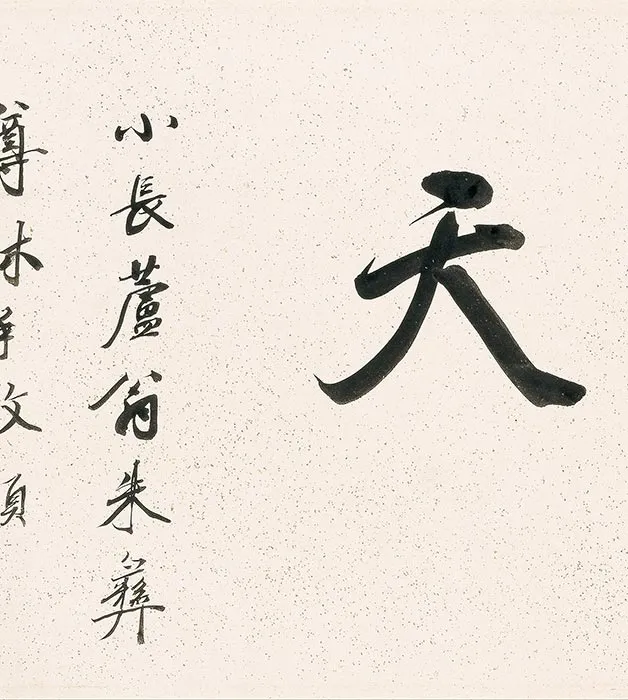 天
小長蘆翁朱彝
尊